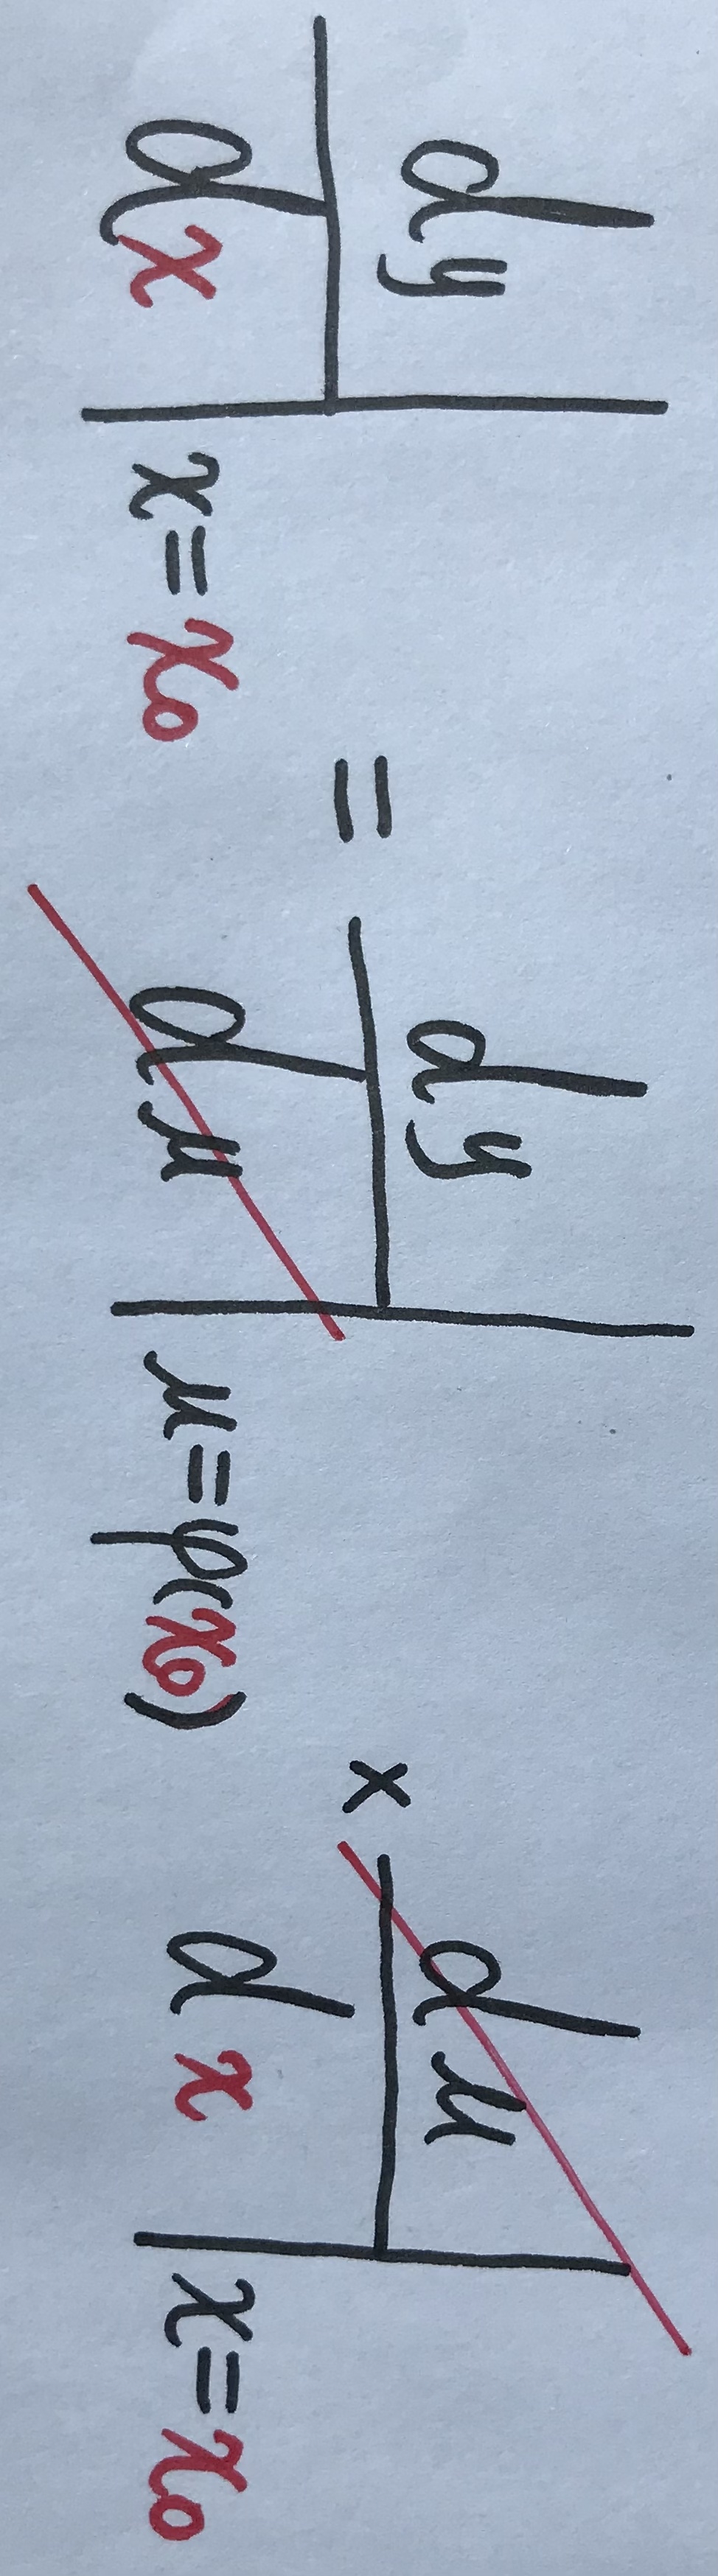 dy/dx | x=x₀ = dy/du | u=φ(x₀) × du/dx | x=x₀